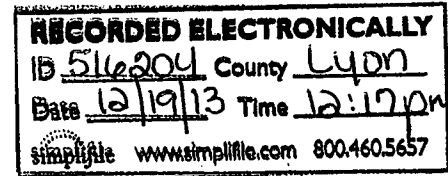 RECORDED ELECTRONICALLY
ID 516204 County Lyon
Date 12/19/13 Time 12:17pm
simplifile www.simplifile.com 800.460.5657